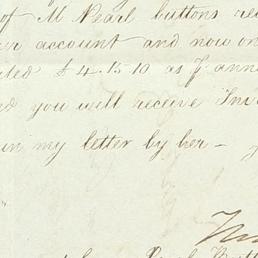 of M Pearl buttons rec
er account and now on
ted £4.15.10 as p anne
d you will receive Invo
in my letter by her -